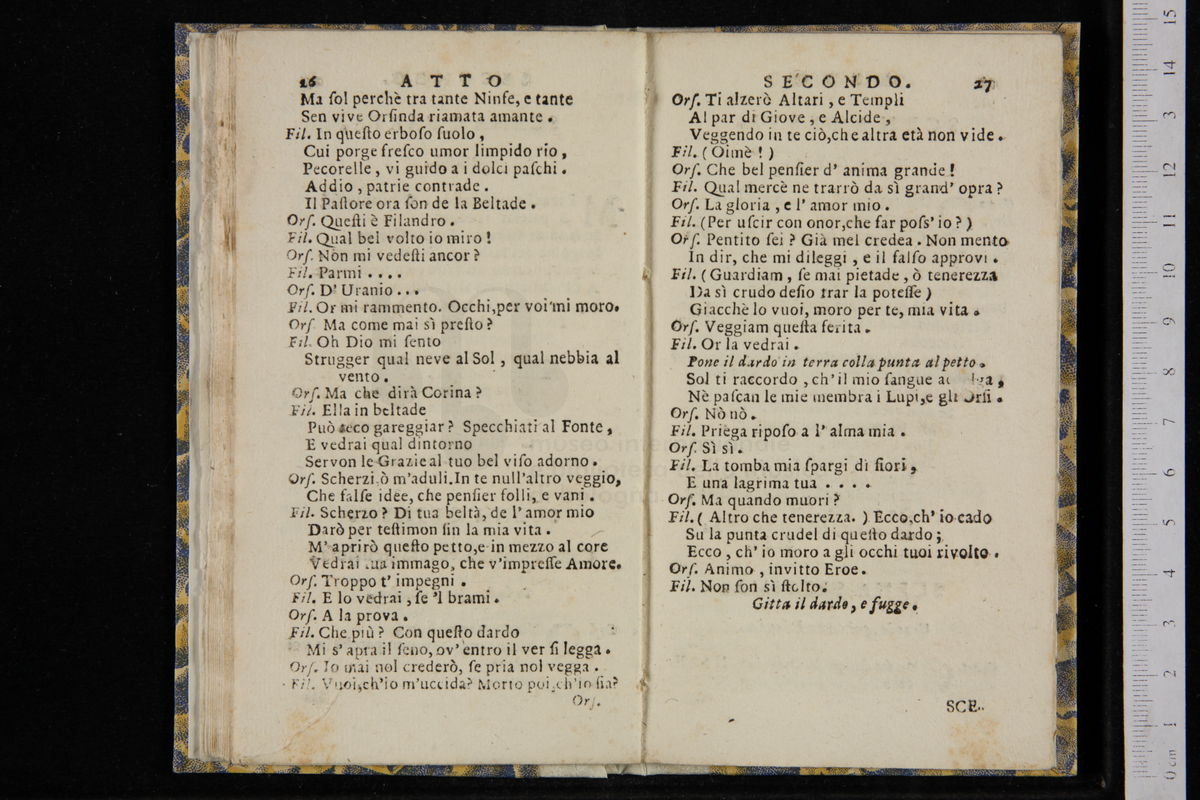 26 ATTO
Ma ſol perchè tra tante Ninfe, e tante
Sen vive Orſinda riamata amante.
Fil. In queſto erboſo ſuolo,
Cui porge freſco umor limpido rio,
Pecorelle, vi guido a i dolci paſchi.
Addio, patrie contrade.
Il Paſtore ora ſon de la Beltade.
Orſ. Queſti è Filandro.
Fil. Qual bel volto io miro!
Orſ. Non mi vedeſti ancor?
Fil. Parmi....
Orſ. D' Uranio...
Fil. Or mi rammento. Occhi,per voi mi moro.
Orſ. Ma come mai sì preſto?
Fil. Oh Dio mi ſento
Strugger qual neve al Sol, qual nebbia al
vento.
Orſ. Ma che dirà Corina?
Fil. Ella in beltade
Può teco gareggiar? Specchiati al Fonte,
E vedrai qual dintorno
Servon le Grazie al tuo bel viſo adorno.
Orſ. Scherzi,ò m'aduli.In te null'altro veggio,
Che falſe idee, che penſier folli, e vani.
Fil. Scherzo? Di tua beltà, de l'amor mio
Darò per teſtimon ſin la mia vita.
M' aprirò queſto petto,e in mezzo al core
Vedrai tua immago, che v'impreſſe Amore.
Orſ. Troppo t' impegni.
Fil. E lo vedrai, ſe 'l brami.
Orſ. A la prova.
Fil. Che più? Con queſto dardo
Mi s' apra il ſeno, ov' entro il ver ſi legga.
Orſ. Io mai nol crederò, ſe pria nol vegga.
Fil. Vuoi,ch'io m'uccida? Morto poi,ch'io ſia?
Orſ.
SECONDO. 27
Orſ. Ti alzerò Altari, e Templi
Al par di Giove, e Alcide,
Veggendo in te ciò,che altra età non vide.
Fil. (Oimè!)
Orſ. Che bel penſier d' anima grande!
Fil. Qual mercè ne trarrò da sì grand' opra?
Orſ. La gloria, e l' amor mio.
Fil. (Per uſcir con onor,che far poſs' io?)
Orſ. Pentito ſei? Già mel credea. Non mento
In dir, che mi dileggi, e il falſo approvi.
Fil. (Guardiam, ſe mai pietade, ò tenerezza
Da sì crudo deſio trar la poteſſe)
Giacchè lo vuoi, moro per te, mia vita.
Orſ. Veggiam queſta ferita.
Fil. Or la vedrai.
Pone il dardo in terra colla punta al petto.
Sol ti raccordo, ch' il mio ſangue
Nè paſcan le mie membra i Lupi,e gli Orſi.
Orſ. Nò nò.
Fil. Priega ripoſo a l' alma mia.
Orſ. Sì sì.
Fil. La tomba mia ſpargi di fiori,
E una lagrima tua....
Orſ. Ma quando muori?
Fil. (Altro che tenerezza.) Ecco,ch' io cado
Su la punta crudel di queſto dardo;
Ecco, ch' io moro a gli occhi tuoi rivolto.
Orſ. Animo, invitto Eroe.
Fil. Non ſon sì ſtolto.
Gitta il dardo, e fugge.
SCE-
0 cm 1 2 3 4 5 6 7 8 9 10 11 12 13 14 15